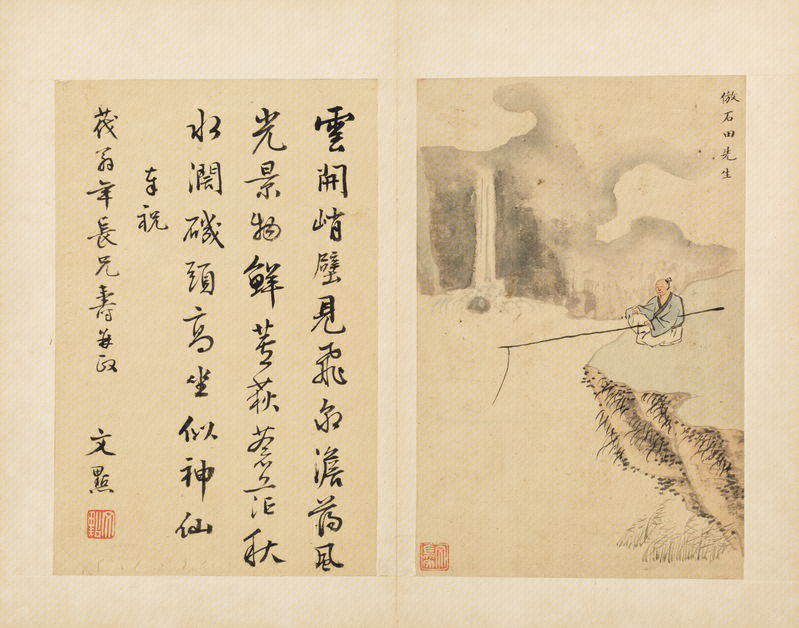 倣石田先生
雲開峭壁見飛泉澹蕩風
光景物鮮蘆荻蒼茫秋
水濶磯頭高坐似神仙
奉祝
茂翁年長兄壽並政
文點